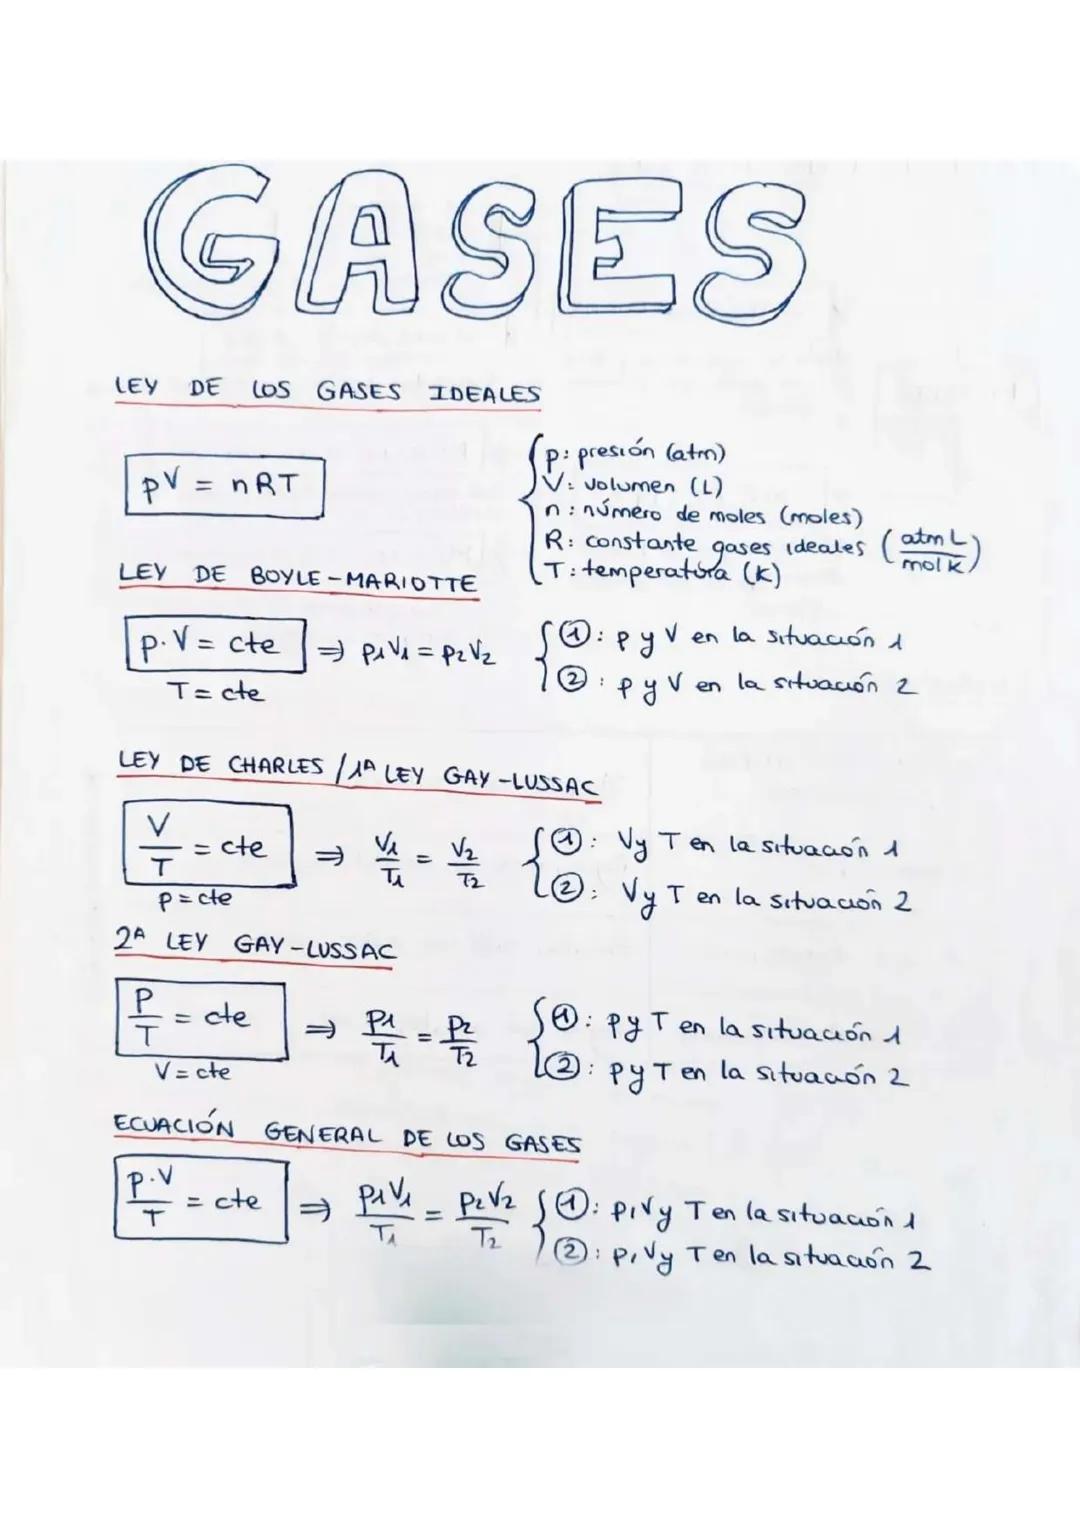 GASES
LEY DE LOS GASES IDEALES
pV = nRT
p: presión (atm)
V: volumen (L)
n: número de moles (moles)
R: constante gases ideales (atm L / mol K)
T: temperatura (K)
LEY DE BOYLE-MARIOTTE
p·V = cte ⇒ p₁V₁ = p₂V₂
T = cte
①: p y V en la situación 1
②: p y V en la situación 2
LEY DE CHARLES / 1ª LEY GAY-LUSSAC
V/T = cte ⇒ V₁/T₁ = V₂/T₂
p = cte
①: V y T en la situación 1
②: V y T en la situación 2
2ª LEY GAY-LUSSAC
P/T = cte ⇒ P₁/T₁ = P₂/T₂
V = cte
①: p y T en la situación 1
②: p y T en la situación 2
ECUACIÓN GENERAL DE LOS GASES
p·V/T = cte ⇒ p₁V₁/T₁ = p₂V₂/T₂
①: p, V y T en la situación 1
②: p, V y T en la situación 2